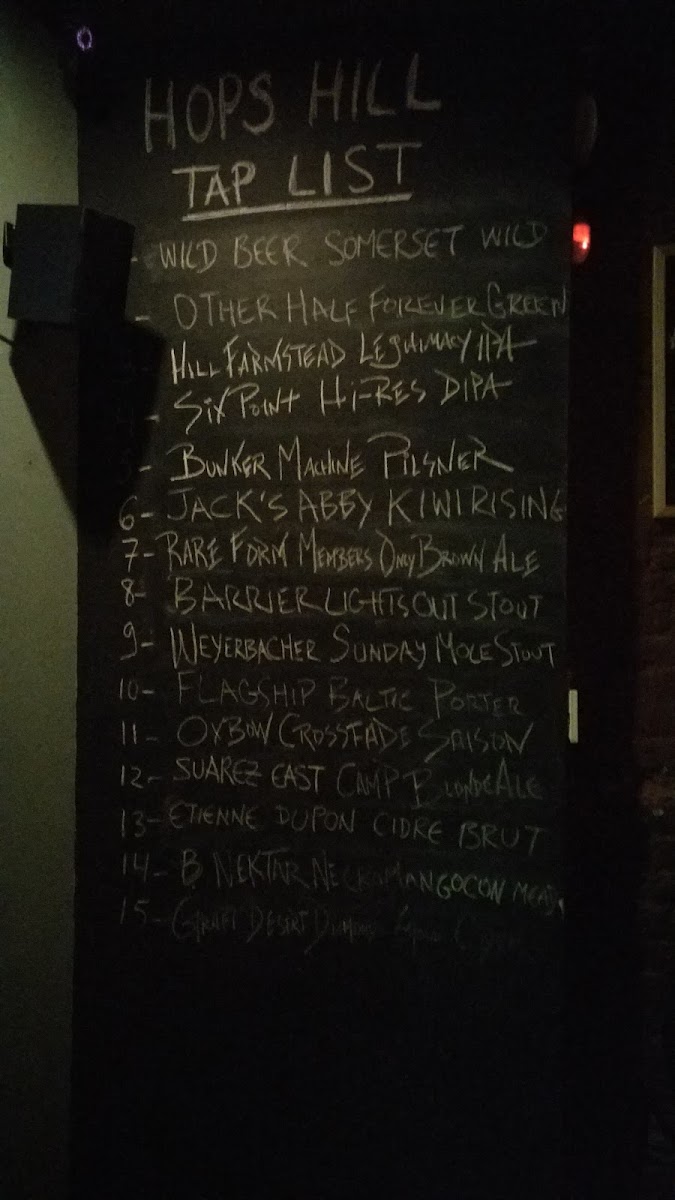 HOPS HILL
TAP LIST
- WILD BEER SOMERSET WILD
- OTHER HALF FOREVER GREEN
HILL FARMSTEAD LEGITIMACY IPA
- SIXPOINT HI-RES DIPA
5- BUNKER MACHINE PILSNER
6- JACK'S ABBY KIWI RISING
7- RARE FORM MEMBERS ONLY BROWN ALE
8- BARRIER LIGHTS OUT STOUT
9- WEYERBACHER SUNDAY MOLE STOUT
10- FLAGSHIP BALTIC PORTER
11- OXBOW CROSSFADE SAISON
12- SUAREZ EAST CAMP BLONDE ALE
13- ETIENNE DUPON CIDRE BRUT
14- B NEKTAR NECROMANGOCON MEAD
15- DESERT